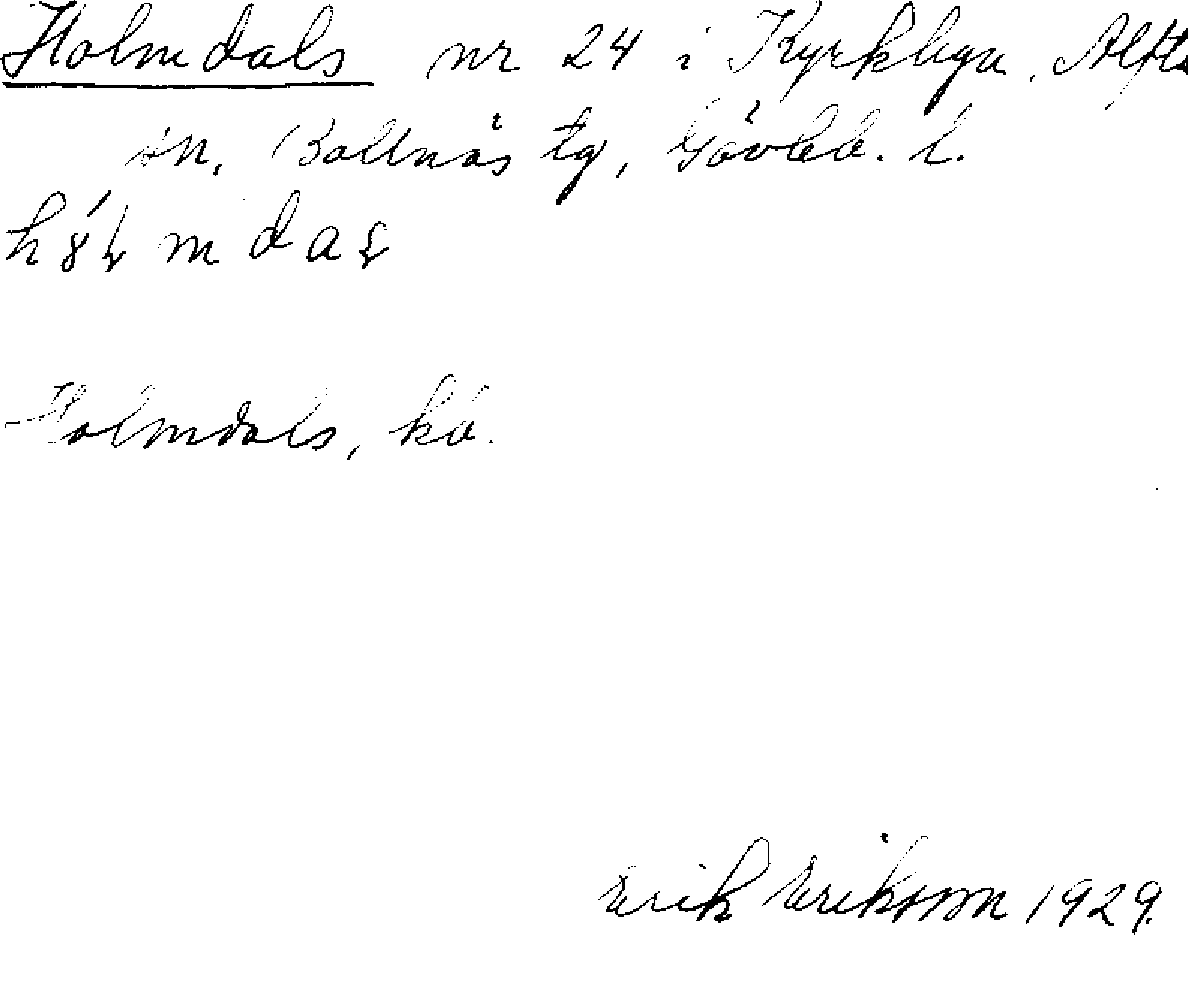 Holmdals nr 24 i Kyrkbyn, Alfta
sn, Bollnäs tg, Gävleb. l.
Holmdals, kö.
Erik Erikson 1929.